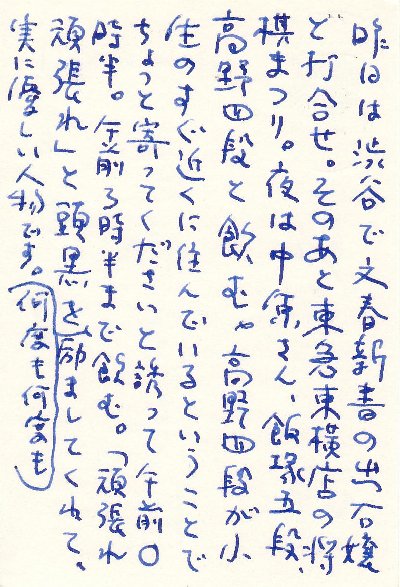 昨日は渋谷で文春新書の出石嬢
と打合せ。そのあと東急東横店の将
棋まつり。夜は中原さん、飯塚五段、
高野四段と飲む。高野四段が小
生のすぐ近くに住んでいるということで
ちょっと寄ってくださいと誘って午前〇
時半。午前3時半まで飲む。「頑張れ
頑張れ」と頭黒を励ましてくれて、
実に優しい人物です。何度も何度も